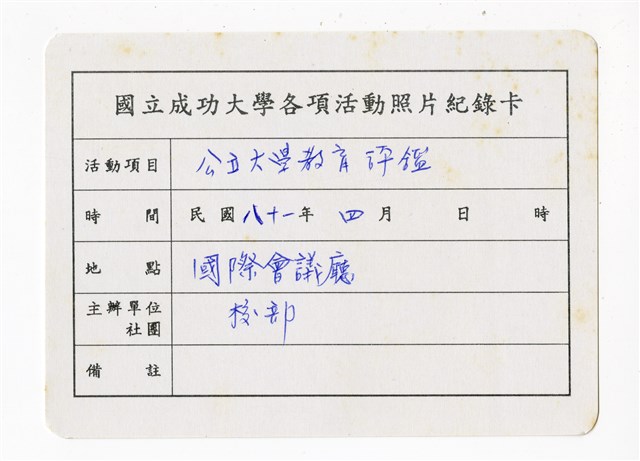 國立成功大學各項活動照片紀錄卡
活動項目 公立大學教育評鑑
時間 民國八十一年 四月 日 時
地點 國際會議廳
主辦單位
社團 校部
備註